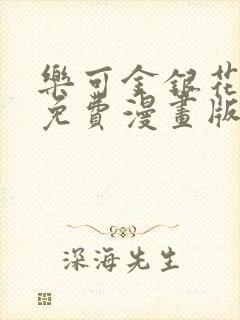 樂可金銀花
免費漫畫版
深海先生